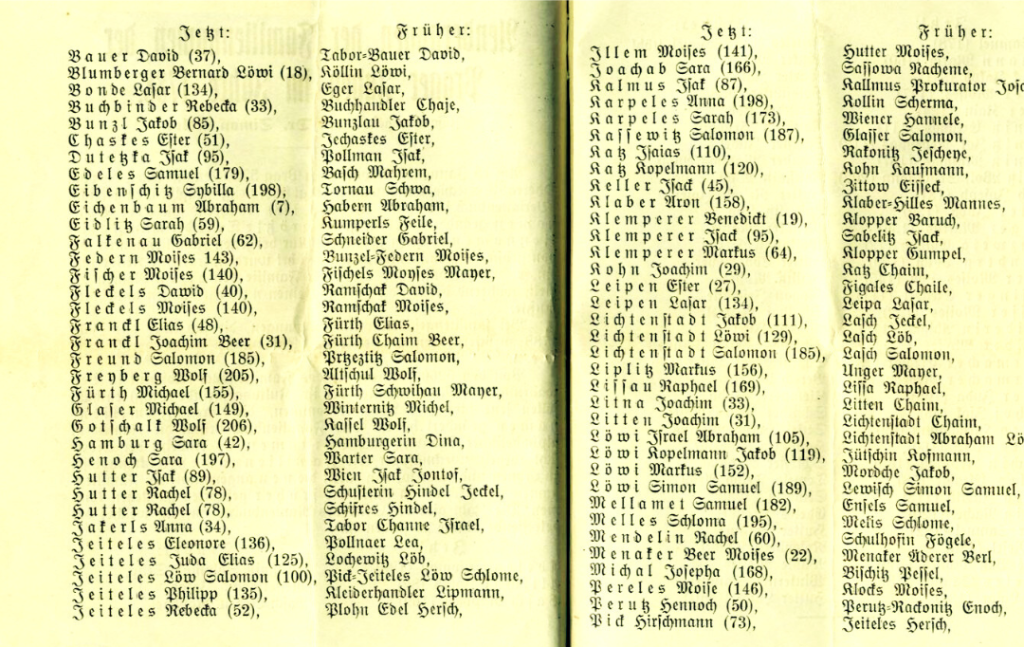 Jetzt: Früher:
Bauer David (37), Tabor-Bauer David,
Blumberger Bernard Löwi (18), Köllin Löwi,
Bonde Lasar (134), Eger Lasar,
Buchbinder Rebecka (33), Buchhandler Chaje,
Bunzl Jakob (85), Bunzlau Jakob,
Chaskes Ester (51), Jechaskes Ester,
Dutetzka Isak (95), Pollman Isak,
Edeles Samuel (179), Basch Mahrem,
Eibenschitz Sybilla (198), Tornau Schwa,
Eichenbaum Abraham (7), Habern Abraham,
Eidlitz Sarah (59), Kumperls Feile,
Falkenau Gabriel (62), Schneider Gabriel,
Federn Moises 143), Bunzel-Federn Moises,
Fischer Moises (140), Fischels Moyses Mayer,
Fleckels Dawid (40), Ramschak David,
Fleckels Moises (140), Ramschak Moises,
Franckl Elias (48), Fürth Elias,
Franckl Joachim Beer (31), Fürth Chaim Beer,
Freund Salomon (185), Prtzeztitz Salomon,
Freyberg Wolf (205), Altschul Wolf,
Fürth Michael (155), Fürth Schwihau Mayer,
Glaser Michael (149), Winternitz Michel,
Gotschalk Wolf (206), Kassel Wolf,
Hamburg Sara (42), Hamburgerin Dina,
Henoch Sara (197), Warter Sara,
Hutter Isak (89), Wien Isak Jontof,
Hutter Rachel (78), Schusterin Hindel Jeckel,
Hutter Rachel (78), Schifres Hindel,
Jakerls Anna (34), Tabor Channe Israel,
Jeiteles Eleonore (136), Pollnaer Lea,
Jeiteles Juda Elias (125), Lochewitz Löb,
Jeiteles Löw Salomon (100), Pick-Jeiteles Löw Schlome,
Jeiteles Philipp (135), Kleiderhandler Lipmann,
Jeiteles Rebecka (52), Plohn Edel Hersch,
Jetzt: Früher:
Illem Moises (141), Hutter Moises,
Joachab Sara (166), Sassowa Nacheme,
Kalmus Isak (87), Kallmus Prokurator
Karpeles Anna (198), Kollin Scherma,
Karpeles Sarah (173), Wiener Hannele,
Kassewitz Salomon (187), Glasser Salomon,
Katz Isaias (110), Rakonitz Jescheye,
Katz Kopelmann (120), Kohn Kaufmann,
Keller Isack (45), Zittow Eisseck,
Klaber Aron (158), Klaber-Hilles Mannes,
Klemperer Benedickt (19), Klopper Baruch,
Klemperer Isack (95), Sabelitz Isack,
Klemperer Markus (64), Klopper Gumpel,
Kohn Joachim (29), Katz Chaim,
Leipen Ester (27), Figales Chaile,
Leipen Lasar (134), Leipa Lasar,
Lichtenstadt Jakob (111), Lasch Jeckel,
Lichtenstadt Löwi (129), Lasch Löb,
Lichtenstadt Salomon (185), Lasch Salomon,
Liplitz Markus (156), Unger Mayer,
Lissau Raphael (169), Lissa Raphael,
Litna Joachim (33), Litten Chaim,
Litten Joachim (31), Lichtenstadt Chaim,
Löwi Israel Abraham (105), Lichtenstadt Abraham Lö
Löwi Kopelmann Jakob (119), Jütschin Kosmann,
Löwi Markus (152), Mordche Jakob,
Löwi Simon Samuel (189), Lewisch Simon Samuel,
Mellamet Samuel (182), Ensels Samuel,
Melles Schloma (195), Melis Schlome,
Mendelin Rachel (60), Schulhofin Fögele,
Menaker Beer Moises (22), Menaker Aderer Berl,
Michal Josepha (168), Bischitz Pessel,
Pereles Moise (146), Klocks Moises,
Perutz Hennoch (50), Perutz-Rackonitz Enoch,
Pick Hirschmann (73), Jeiteles Hersch,